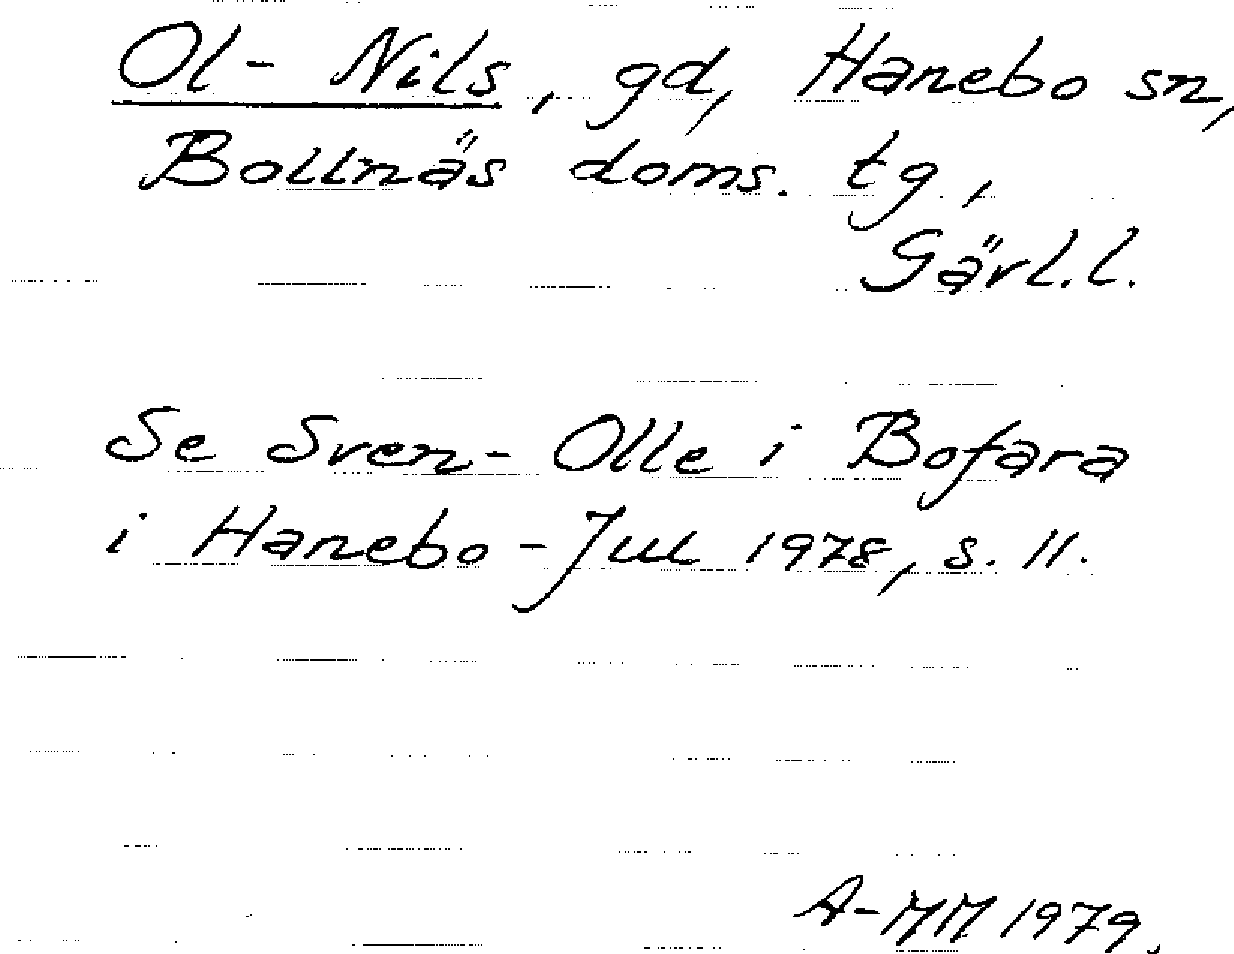 Ol- Nils, gd, Hanebo sn,
Bollnäs doms. tg,
Gävl.l.
Se Sven-Olle i Bofara
i Hanebo-Jul 1978, s. 11.
A-MM 1979.